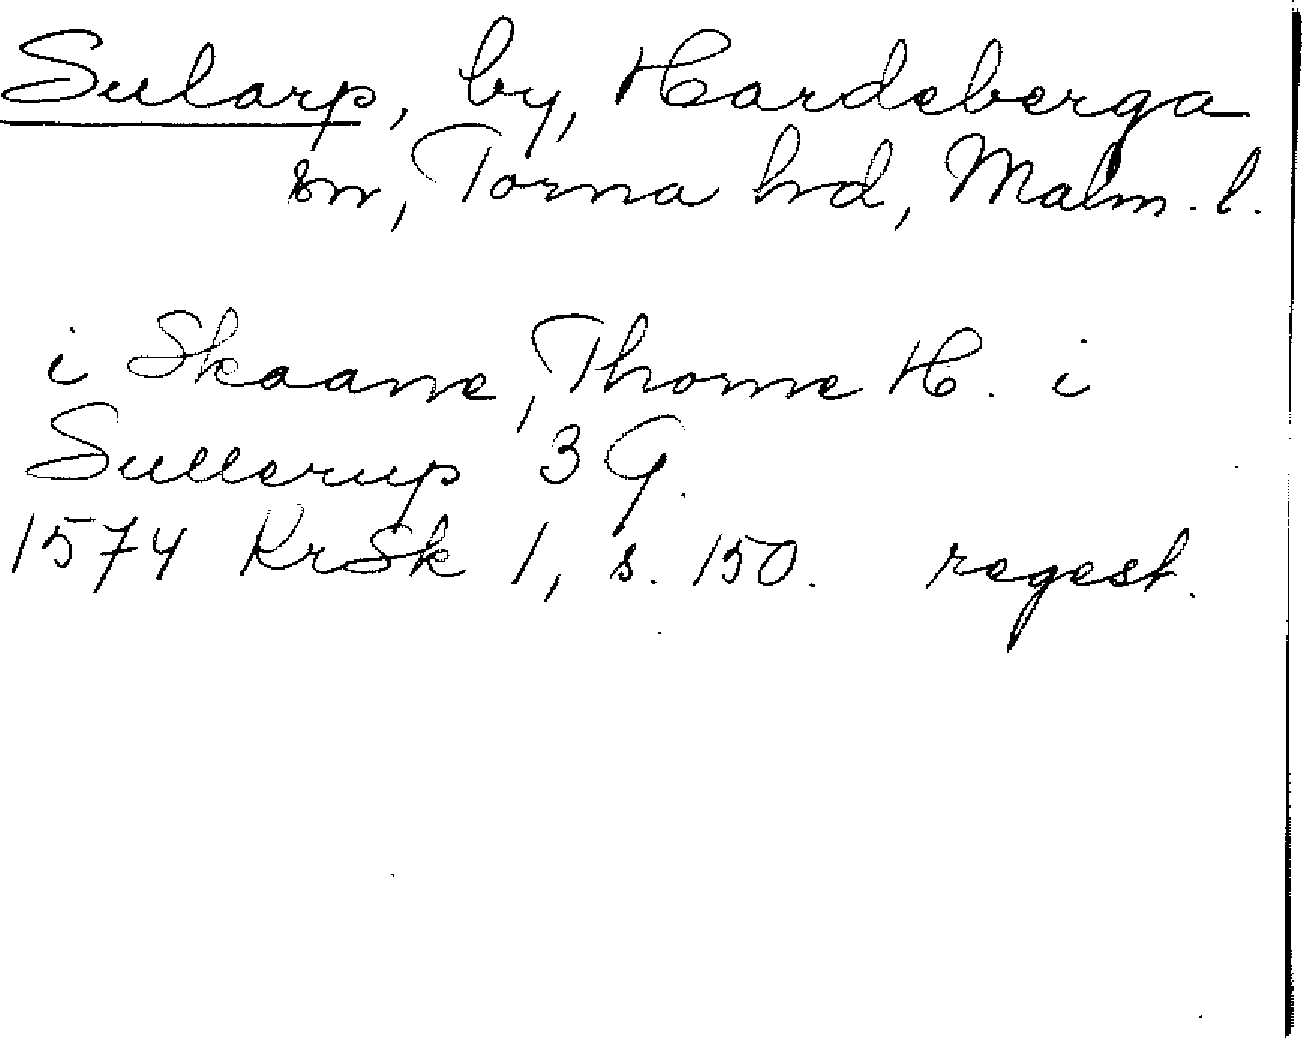 Sularp, by, Hardeberga
sn, Torna hd, Malm. l.
i Skaane, Thome H. i
Sullerup 3 G.
1574 KrSk 1, s. 150. regest.